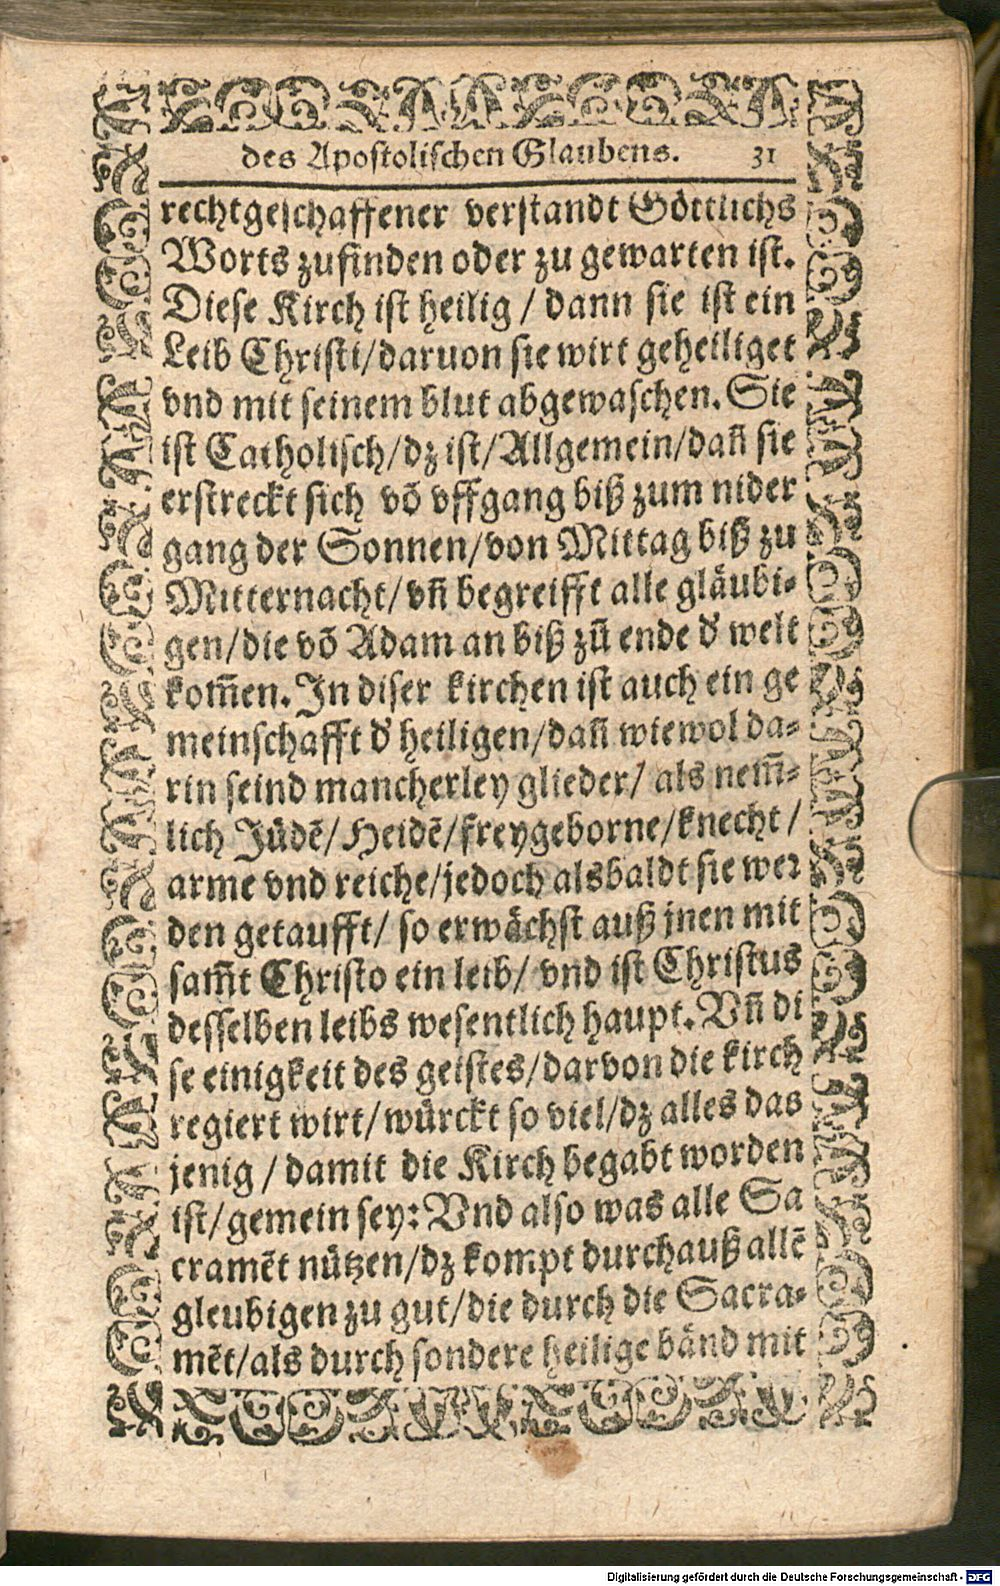 des Apostolischen Glaubens. 31
rechtgeschaffener verstandt Göttlichs
Worts zufinden oder zu gewarten ist.
Diese Kirch ist heilig / dann sie ist ein
Leib Christi/daruon sie wirt geheiliget
vnd mit seinem blut abgewaschen. Sie
ist Catholisch/dz ist/Allgemein/dañ sie
erstreckt sich võ vffgang biß zum nider
gang der Sonnen/von Mittag biß zu
Mitternacht/vñ begreifft alle gläubi-
gen/die võ Adam an biß zũ ende d' welt
kom̃en. In diser kirchen ist auch ein ge
meinschafft d' heiligen/dañ wiewol da-
rin seind mancherley glieder/ als nem̃-
lich Jüdẽ/Heidẽ/freygeborne/knecht/
arme vnd reiche/jedoch alsbaldt sie wer
den getaufft/ so erwächst auß jnen mit
sam̃t Christo ein leib/ vnd ist Christus
desselben leibs wesentlich haupt. Vñ di
se einigkeit des geistes/darvon die kirch
regiert wirt/würckt so viel/dz alles das
jenig / damit die Kirch begabt worden
ist/gemein sey: Vnd also was alle Sa
cramẽt nützen/dz kompt durchauß allẽ
gleubigen zu gut/die durch die Sacra-
mẽt/als durch sondere heilige bänd mit
Digitalisierung gefördert durch die Deutsche Forschungsgemeinschaft - DFG